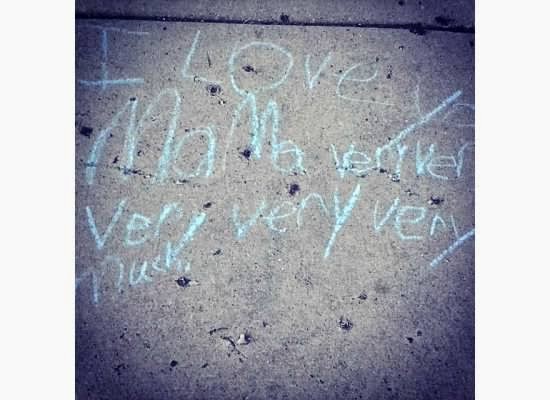 I LOve
MaMa very ver
very very very
much.